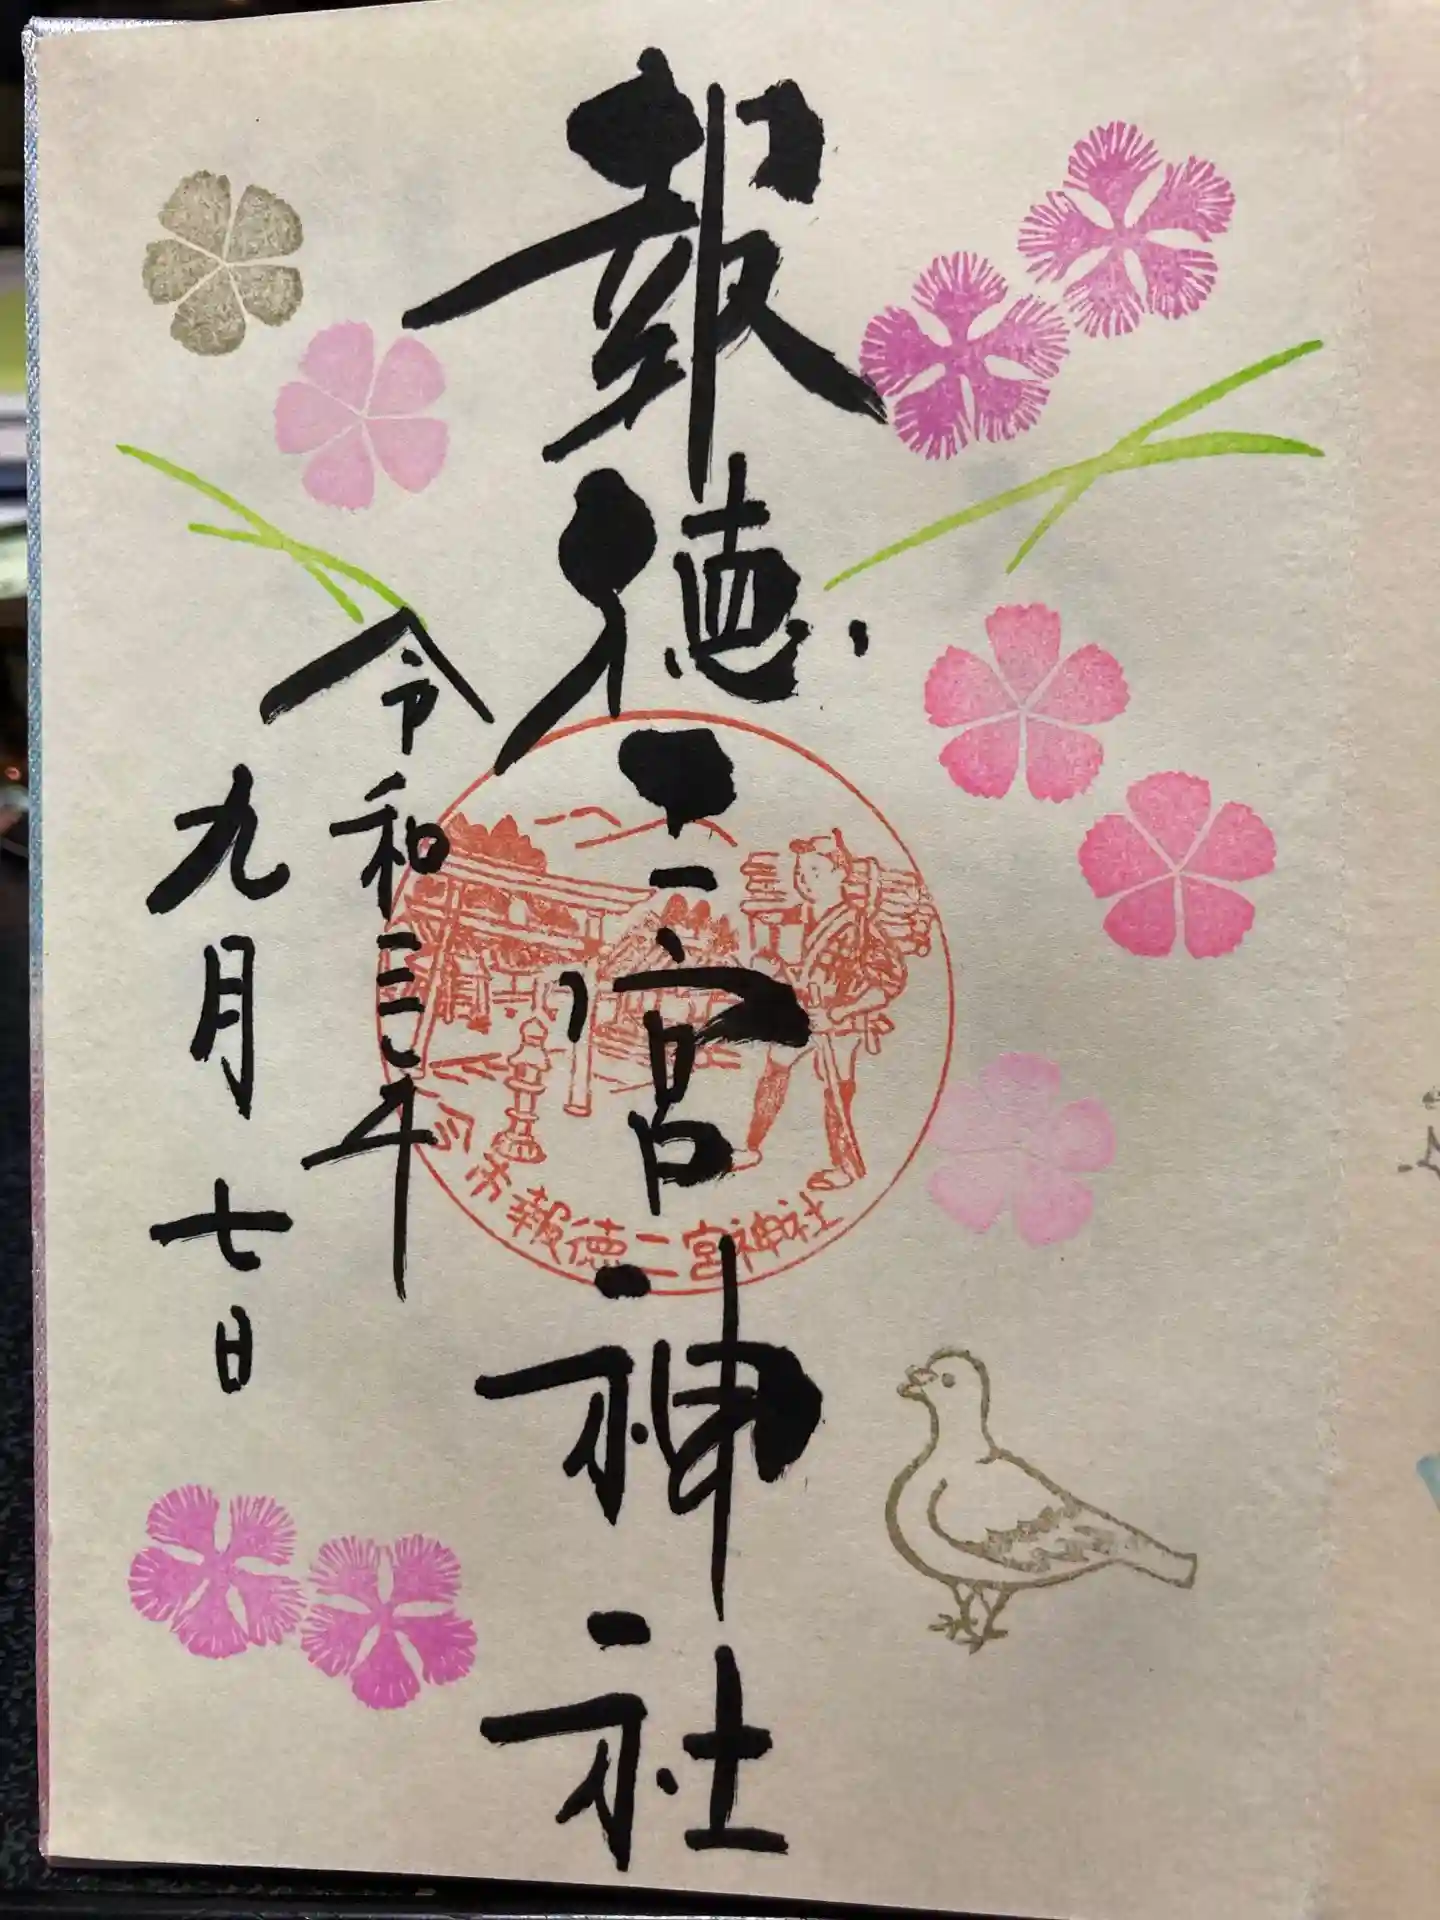 報徳二宮神社
令和三年
九月七日
今市報徳二宮神社